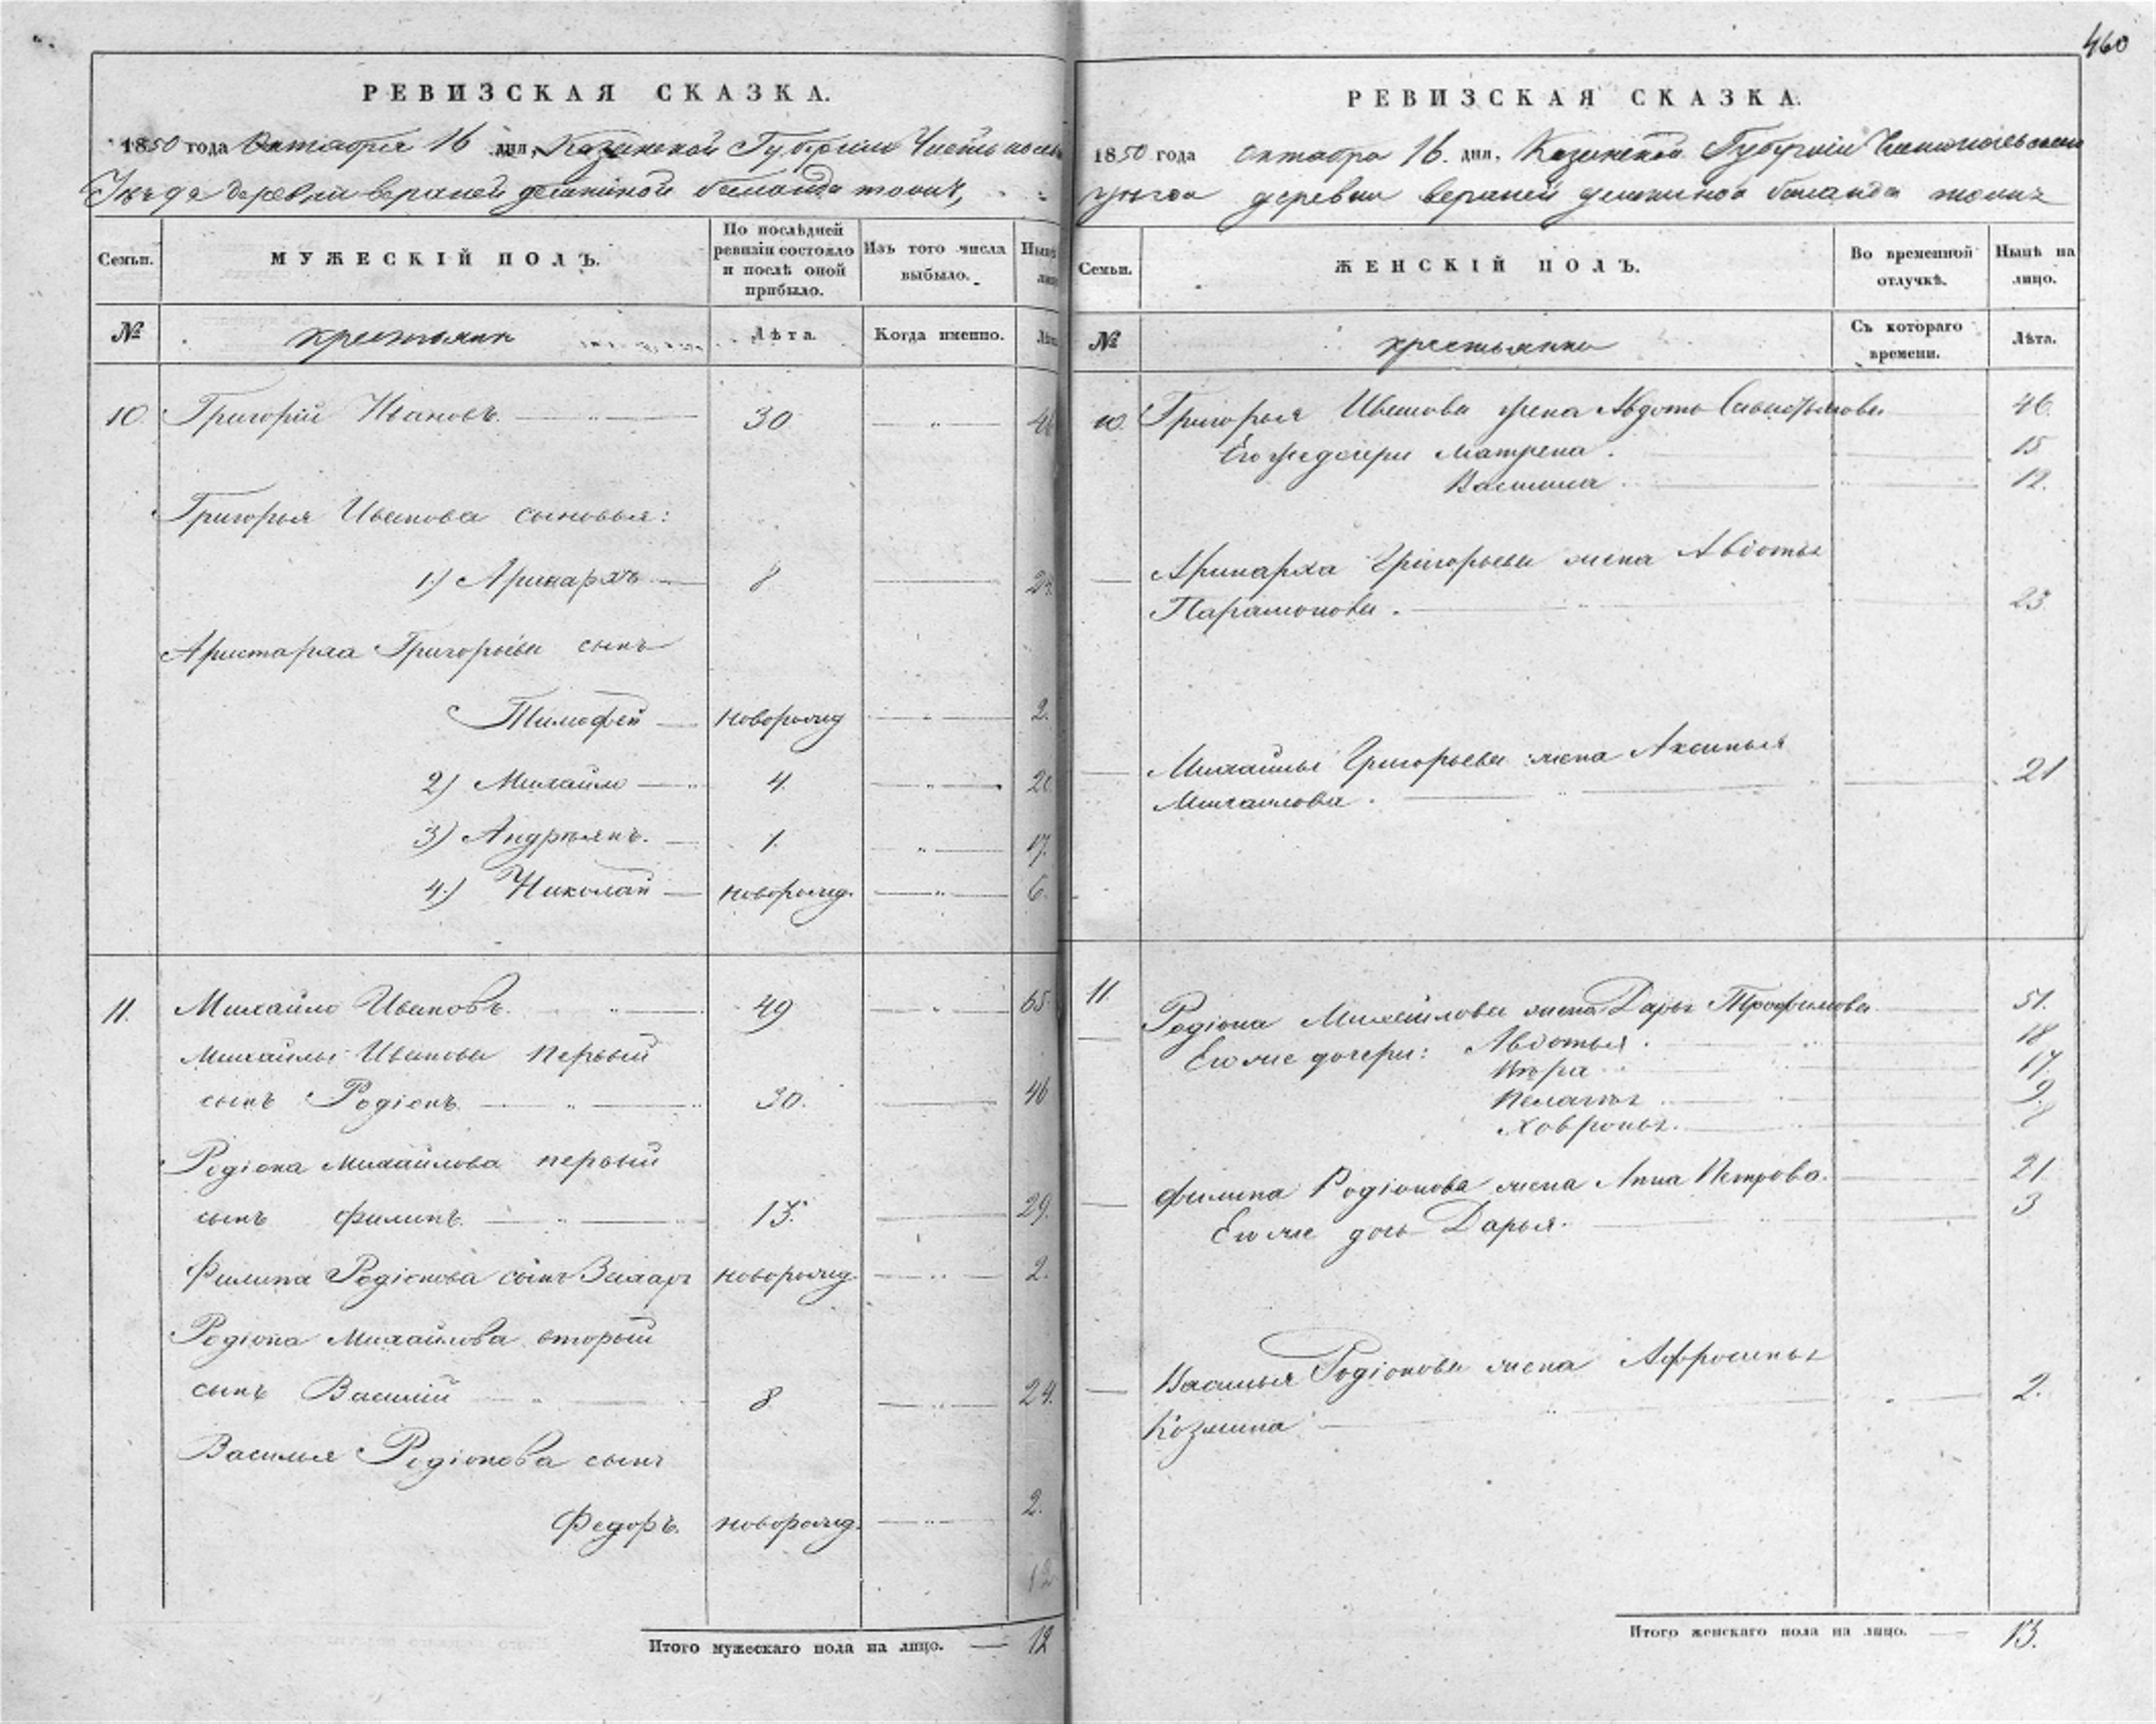 460
РЕВИЗСКАЯ СКАЗКА.
1850 года Октября 16 дня, Казанской Губернии
деревни верхней
Семьи. МУЖЕСКІЙ ПОЛЪ. По послѣдней ревизіи состояло и послѣ оной прибыло. Изъ того числа выбыло.
№ крестьяне Лѣта. Когда именно.
10. Григорій Ивановъ 30
Григорья Иванова сыновья:
1.) Аринархъ 8
Аристарха Григорьева сынъ
Тимофей новорожд 2.
2) Михайло 4.
3) Андреянъ. 1. 17.
4.) Николай новорожд. 6.
11. Михайло Ивановъ. 49 65.
Михайлы Иванова первый
сынъ Родіонъ 30. 46
Родіона Михайлова первый
сынъ Филипъ 13. 29.
Филипа Родіонова сынъ Захаръ новорожд. 2.
Родіона Михайлова вторый
сынъ Василій 8 24.
Василья Родіонова сынъ
Федоръ. новорожд. 2.
12
Итого мужескаго пола на лицо. 12
РЕВИЗСКАЯ СКАЗКА.
1850 года октября 16. дня, Казанской Губерніи
деревни верхней
Семьи. ЖЕНСКІЙ ПОЛЪ. Во временной отлучкѣ. Нынѣ на лицо.
№ крестьянки Съ котораго времени. Лѣта.
10. Григорья Иванова жена 46.
Его же дочери Матрена. 15
12.
Аринарха Григорьева жена Авдотья
Парамонова. 23
Михайлы Григорьева жена Аксинья 21
Михайлова.
11. Родіона Михайлова жена Дарья Трофимова 51.
Его же дочери: Авдотья. 18
Вѣра 17.
Пелагья 9.
Ховронья.
Филипа Родіонова жена Анна Петрова. 21
Его же дочь Дарья. 3
Василья Родіонова жена Афросинья 2.
Козмина
Итого женскаго пола на лицо. 13.